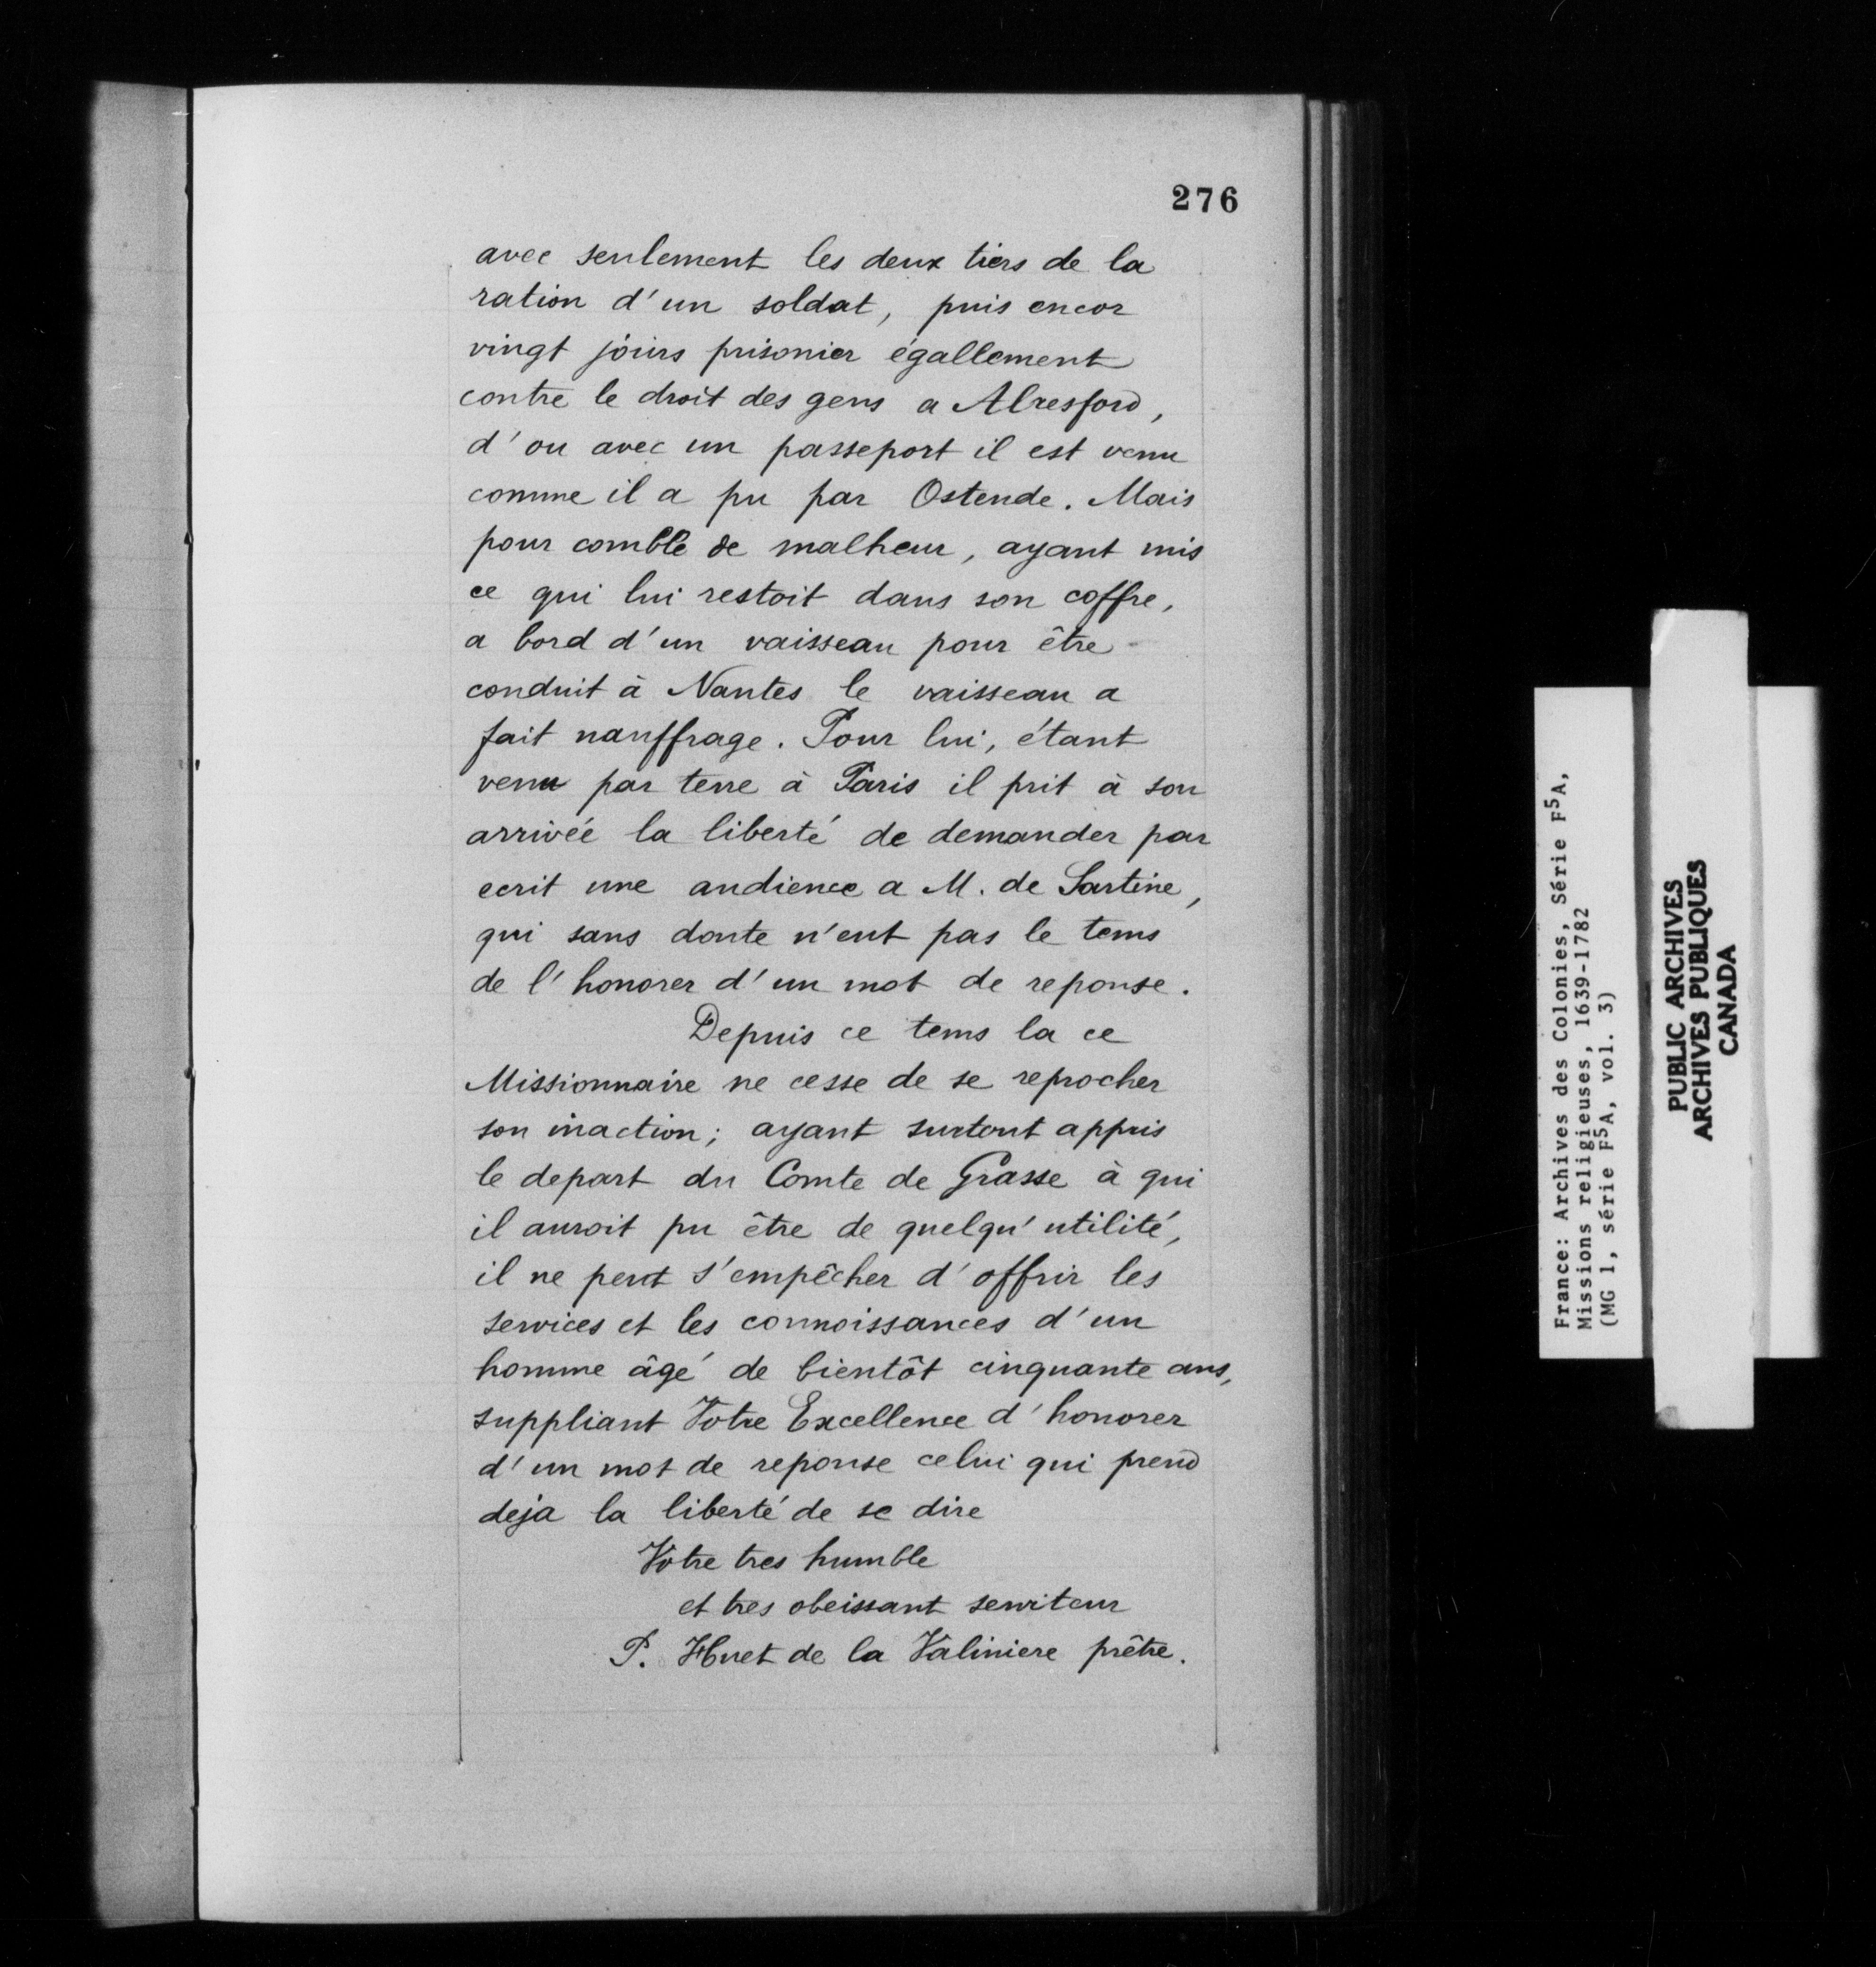 276
avec seulement les deux tiers de la
ration d'un soldat, puis encor
vingt jours prisonier égallement
contre le droit des gens a Alresford,
d'ou avec un passeport il est venu
comme il a pu par Ostende. Mais
pour comble de malheur, ayant mis
ce qui lui restoit dans son coffre,
a bord d'un vaisseau pour être
conduit à Nantes le vaisseau a
fait nauffrage. Pour lui, étant
venu par terre à Paris il prit à son
arrivée la liberté de demander par
ecrit une audience a M. de Sartine,
qui sans doute n'eut pas le tems
de l'honorer d'un mot de reponse.
Depuis ce tems la ce
Missionnaire ne cesse de se reprocher
son inaction; ayant surtout appris
le depart du Comte de Grasse à qui
il auroit pu être de quelqu'utilité,
il ne peut s'empêcher d'offrir les
services et les connoissances d'un
homme âgé de bientôt cinquante ans,
suppliant Votre Excellence d'honorer
d'un mot de reponse celui qui prend
deja la liberté de se dire
Votre tres humble
et tres obeissant serviteur
P. Huet de la Valiniere prêtre.
France: Archives des Colonies, Série F5A,
Missions religieuses, 1639-1782
(MG 1, série F5A, vol. 3)
PUBLIC ARCHIVES
ARCHIVES PUBLIQUES
CANADA